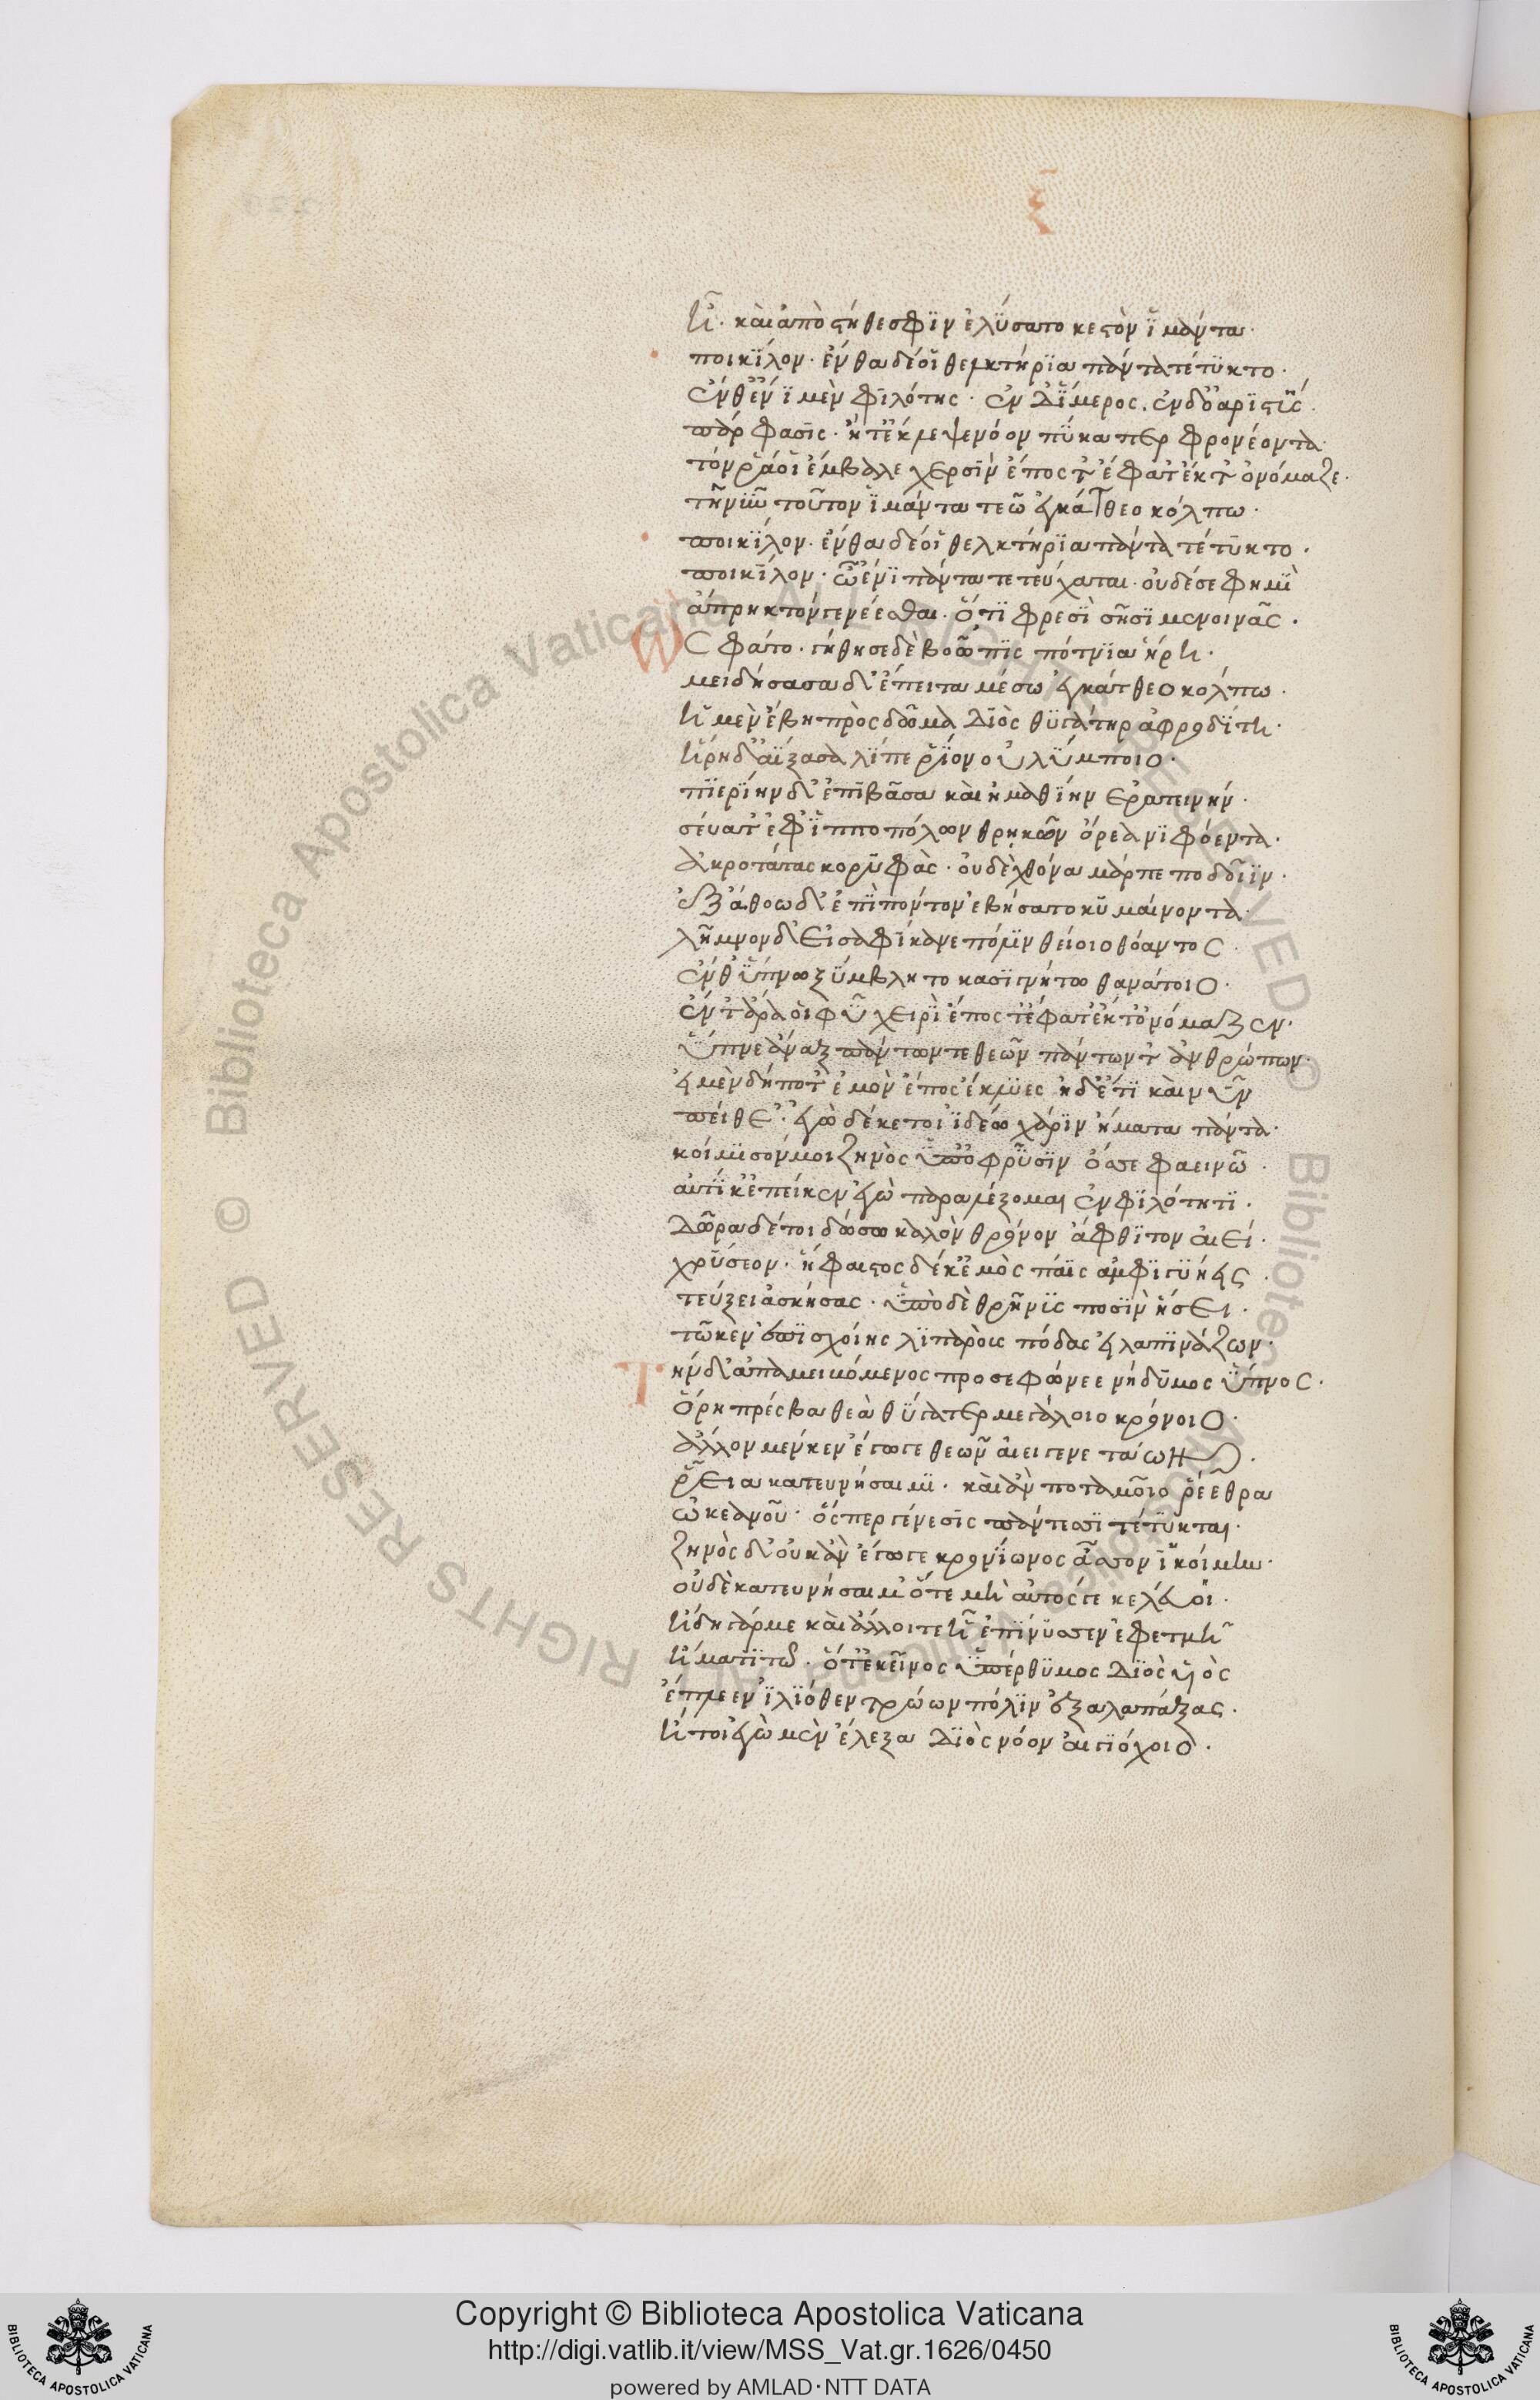 ξ
ἦ. καὶ ἀπὸ στήθεσφιν ἐλύσατο κεστὸν ἱμάντα·
ποικίλον· ἔνθα δέ οἱ θελκτήρια πάντα τέτυκτο·
ἔνθ' ἔνι μὲν φιλότης· ἐν δ' ἵμερος. ἐν δ' ὀαριστὺς·
πάρφασις· ἥτ' ἔκλεψε νόον πύκα περ φρονέοντα·
τόν ῥά οἱ ἔμβαλε χερσὶν ἔπος τ' ἔφατ' ἔκ τ' ὀνόμαζε·
τῆ νῦν τοῦτον ἱμάντα τεῶ ἐγκάτθεο κόλπω·
ποικίλον· ἔνθα δέ οἱ θελκτήρια πάντα τέτυκτο·
ποικίλον· ὧ ἔνι πάντα τετεύχαται· οὐδέ σε φημὶ
ἄπρηκτόν γε νέεσθαι· ὅ,τι φρεσὶ σῆσι μενοινᾶς·
Ὣς φάτο· γήθησε δὲ βοῶπις πότνια ἥρη·
μειδήσασα δ' ἔπειτα μέσω ἐγκάτθεο κόλπω·
ἡ μὲν ἔβη πρὸς δῶμα Διὸς θυγάτηρ ἀφροδίτη·
ἥρη δ' ἀΐξασα λίπε ῥίον οὐλύμποιο·
πιερίην δ' ἐπιβᾶσα καὶ ἠμαθίην ἐρατεινήν·
σεύατ' ἐφ' ἱπποπόλων θρηκῶν ὄρεα νιφόεντα·
ἀκροτάτας κορυφὰς· οὐδὲ χθόνα μάρπτε ποδοῖιν·
ἐξ ἄθοω δ' ἐπὶ πόντον ἐβήσατο κυμαίνοντα·
λῆμνον δ' εἰσαφίκανε πόλιν θείοιο θόαντος·
ἔνθ' ὕπνω ξύμβλητο κασιγνήτω θανάτοιο·
ἔν τ' ἄρα οἱ φῦ χειρὶ ἔπος τ' ἔφατ' ἔκ τ' ὀνόμαζεν·
ὕπνε ἄναξ πάντων τε θεῶν πάντων τ' ἀνθρώπων·
ἠ μὲν δήποτ' ἐμὸν ἔπος ἔκλυες ἠδ' ἔτι καὶ νῦν
πείθε'· ἐγὼ δέ κέ τοι ἰδέω χάριν ἤματα πάντα·
κοίμισόν μοι ζηνὸς ὑπ' ὀφρύσιν ὄσσε φαεινῶ·
αὐτίκ' ἐπεί κεν ἐγὼ παραλέξομαι ἐν φιλότητι·
Δῶρα δέ τοι δώσω καλὸν θρόνον ἄφθιτον αἰεί·
χρύσεον· ἥφαιστος δέ κ' ἐμὸς πάϊς ἀμφιγυήεις·
τεύξει ἀσκήσας· ὑπὸ δὲ θρῆνυς ποσὶν ἥσει·
τῶ κὲν ἐπισχοίης λιπαροὺς πόδας εἰλαπινάζων·
Τὴν δ' ἀπαμειβόμενος προσεφώνεε νήδυμος ὕπνος·
ὅρη πρέσβα θεὰ θύγατερ μεγάλοιο κρόνοιο·
ἄλλον μέν κεν ἔγωγε θεῶν αἰειγενετάων·
ῥεῖα κατευνήσαιμι· καὶ ἂν ποταμοῖο ῥέεθρα
ὠκεανοῦ· ὅσπερ γένεσις πάντεσσι τέτυκται·
ζηνὸς δ' οὐκ ἂν ἔγωγε κρονίωνος ἆσσον ἱκοίμην·
οὐδὲ κατευνήσαιμ' ὅτε μὴ αὐτός γε κελεύοι·
ἤδη γάρ με καὶ ἄλλοτε ἣ ἐπίνυσσεν ἐφετμὴ
ἤματι τῶ· ὅτ' ἐκεῖνος ὑπέρθυμος Διὸς υἱὸς
ἔπλεεν ἰλιόθεν τρώων πόλιν ἐξαλαπάξας·
ἤτοι ἐγὼ μὲν ἔλεξα Διὸς νόον αἰγιόχοιο·
© Biblioteca Apostolica Vaticana ALL RIGHTS RESERVED
© Biblioteca Apostolica Vaticana ALL RIGHTS RESERVED
Copyright © Biblioteca Apostolica Vaticana
http://digi.vatlib.it/view/MSS_Vat.gr.1626/0450
powered by AMLAD·NTT DATA
BIBLIOTECA APOSTOLICA VATICANA
BIBLIOTECA APOSTOLICA VATICANA